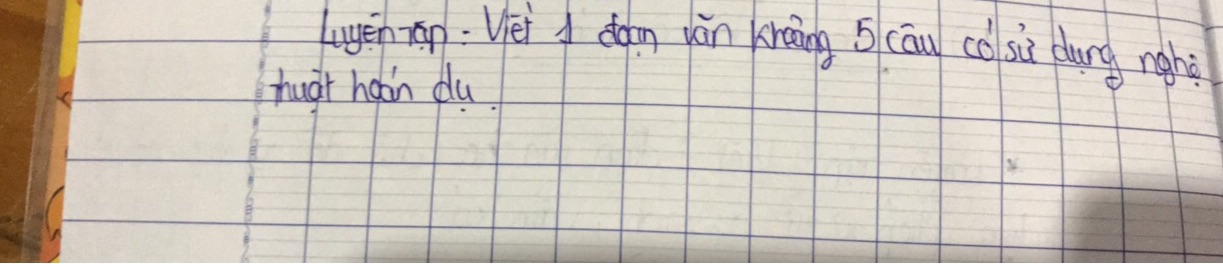 Luyện tập: Viết 1 đoạn văn khoảng 5 câu có sử dụng nghệ
thuật hoán dụ.